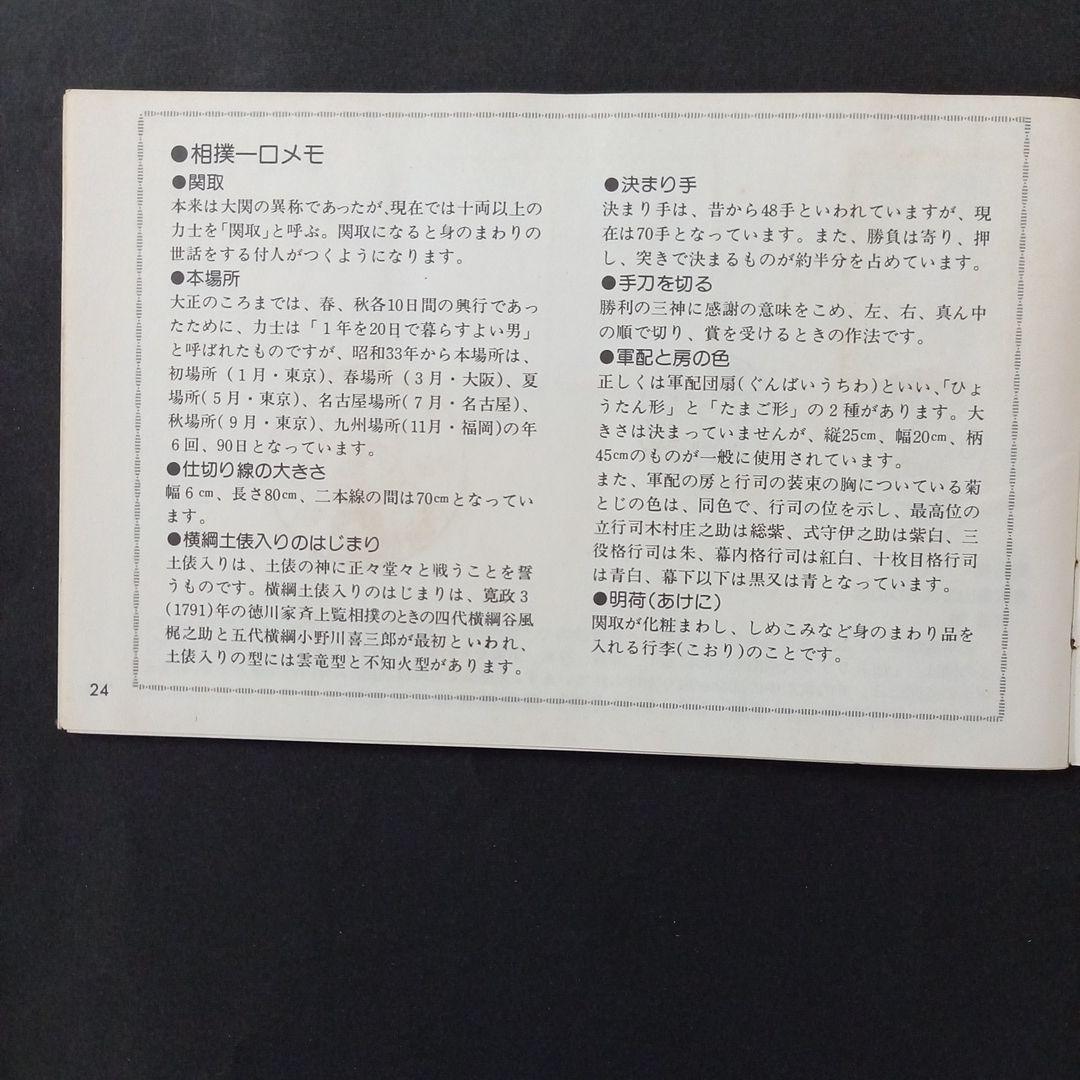 ●相撲一口メモ
●関取
本来は大関の異称であったが、現在では十両以上の
力士を「関取」と呼ぶ。関取になると身のまわりの
世話をする付人がつくようになります。
●本場所
大正のころまでは、春、秋各10日間の興行であっ
たために、力士は「1年を20日で暮らすよい男」
と呼ばれたものですが、昭和33年から本場所は、
初場所(1月・東京)、春場所(3月・大阪)、夏
場所(5月・東京)、名古屋場所(7月・名古屋)、
秋場所(9月・東京)、九州場所(11月・福岡)の年
6回、90日となっています。
●仕切り線の大きさ
幅6cm、長さ80cm、二本線の間は70cmとなってい
ます。
●横綱土俵入りのはじまり
土俵入りは、土俵の神に正々堂々と戦うことを誓
うものです。横綱土俵入りのはじまりは、寛政3
(1791)年の徳川家斉上覧相撲のときの四代横綱谷風
梶之助と五代横綱小野川喜三郎が最初といわれ、
土俵入りの型には雲竜型と不知火型があります。
24
●決まり手
決まり手は、昔から48手といわれていますが、現
在は70手となっています。また、勝負は寄り、押
し、突きで決まるものが約半分を占めています。
●手刀を切る
勝利の三神に感謝の意味をこめ、左、右、真ん中
の順で切り、賞を受けるときの作法です。
●軍配と房の色
正しくは軍配団扇(ぐんばいうちわ)といい、「ひょ
うたん形」と「たまご形」の2種があります。大
きさは決まっていませんが、縦25cm、幅20cm、柄
45cmのものが一般に使用されています。
また、軍配の房と行司の装束の胸についている菊
とじの色は、同色で、行司の位を示し、最高位の
立行司木村庄之助は総紫、式守伊之助は紫白、三
役格行司は朱、幕内格行司は紅白、十枚目格行司
は青白、幕下以下は黒又は青となっています。
●明荷(あけに)
関取が化粧まわし、しめこみなど身のまわり品を
入れる行李(こおり)のことです。